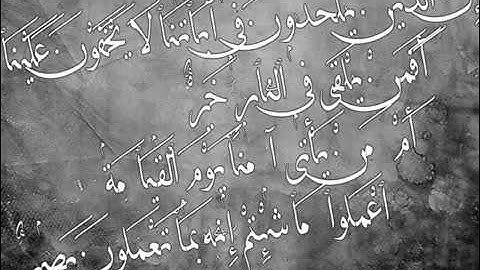 إن الذين يلحدون في آياتنا لا يخفون علينا
أفمن يلقى في النار خير
أم من يأتي آمنا يوم القيامة
اعملوا ما شئتم إنه بما تعملون بصير